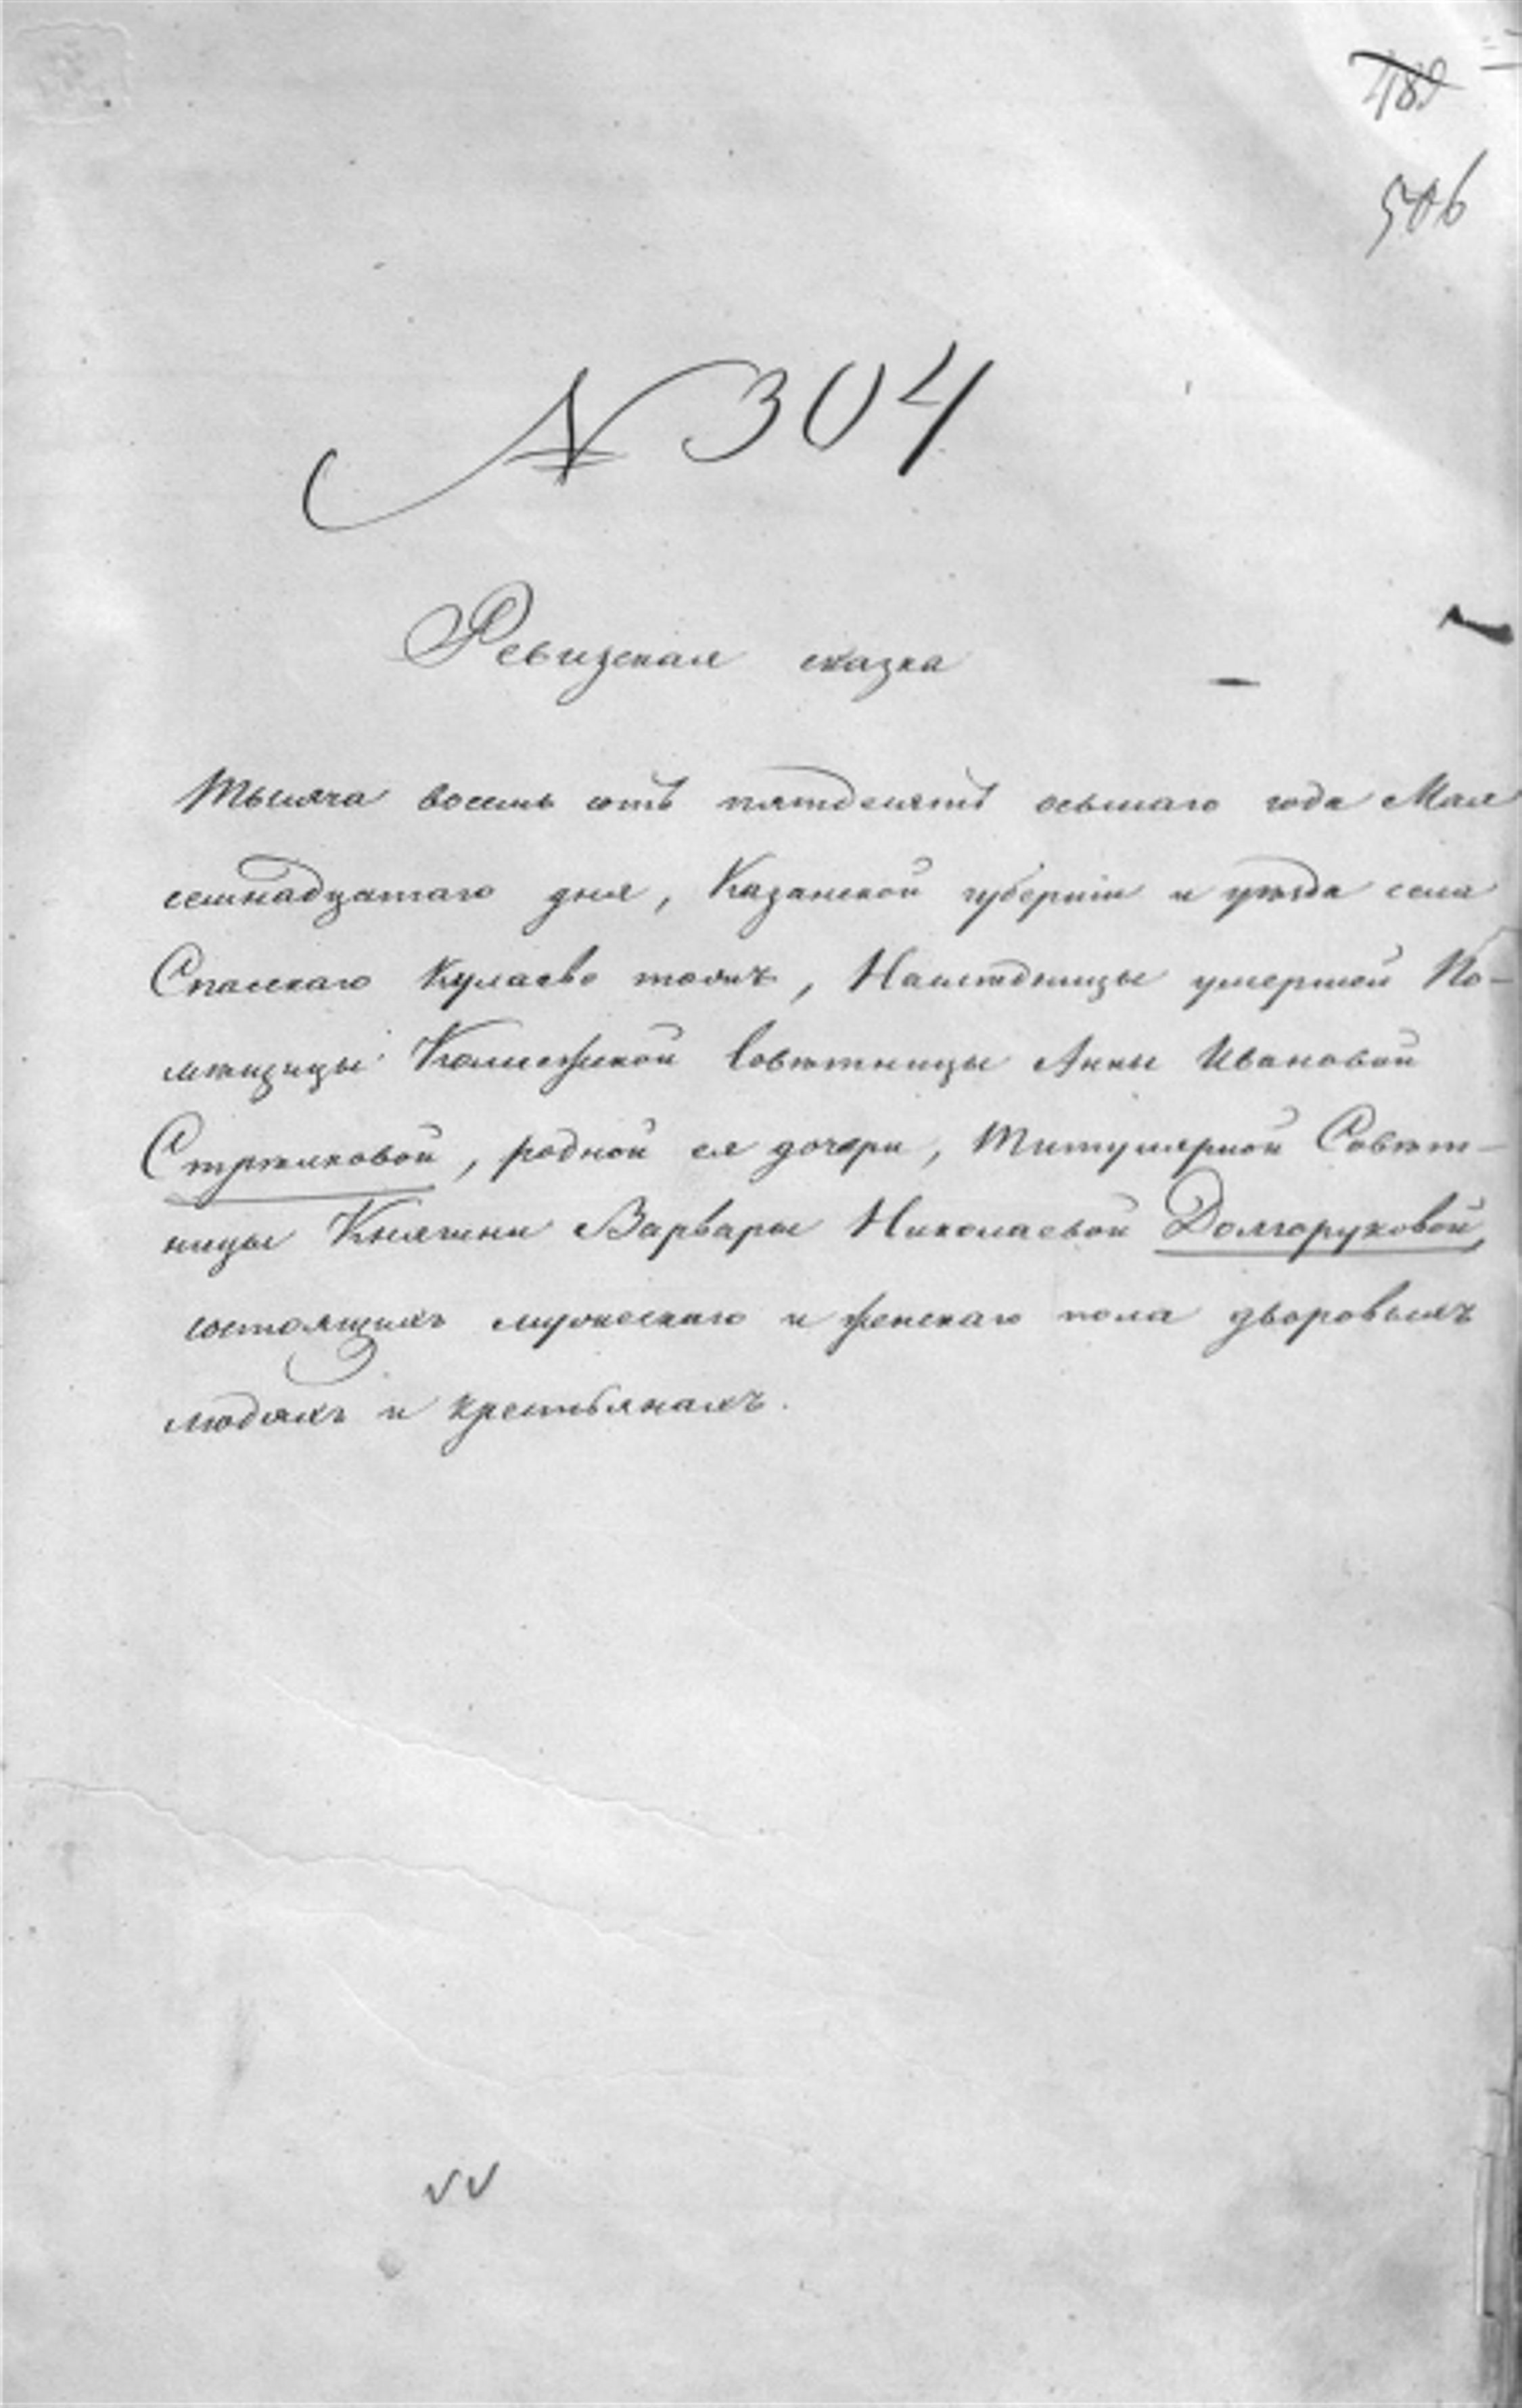 489
506
№ 304
Ревизская сказка
Тысяча восемь сотъ пятдесятъ осьмаго года Мая
семнадцатаго дня, Казанской губерніи и уѣзда села
Спасскаго Кулаево тожъ, Наследницы умершей По-
мѣщицы Коллежской Совѣтницы Анны Ивановой
Стрѣлковой, родной ея дочери, Титулярной Совѣт-
ницы Княгини Варвары Николаевой Долгоруковой,
состоящихъ мужескаго и женскаго пола дворовыхъ
людяхъ и крестьянахъ.